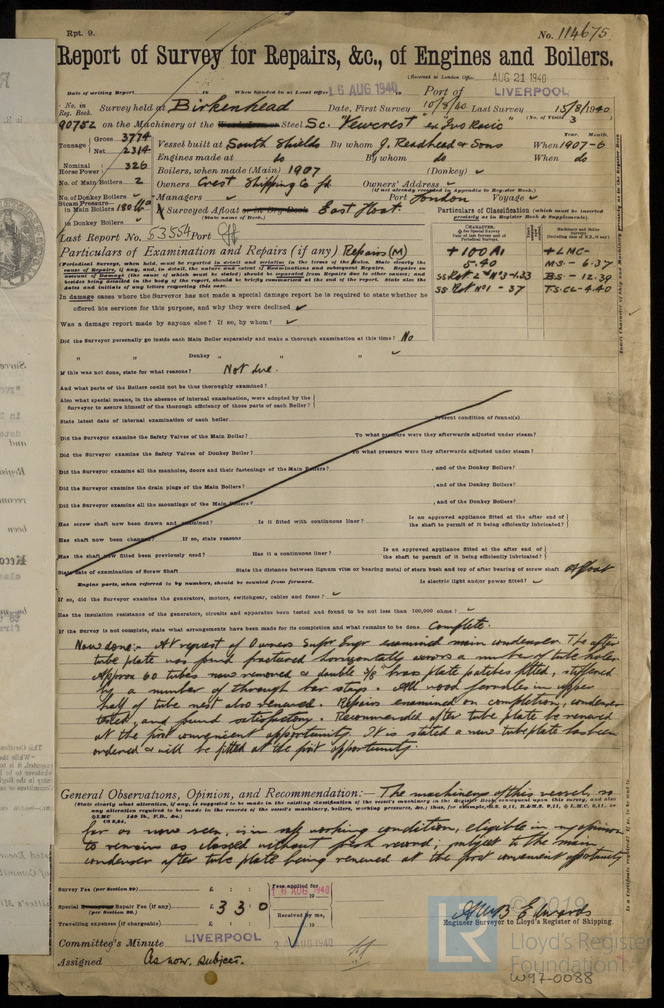 Rpt. 9.
No. 114675
Report of Survey for Repairs, &c., of Engines and Boilers.
(Received at London Office AUG 21 1940
Date of writing Report 19 When handed in at Local Office 16 AUG 1940 Port of LIVERPOOL
No. in Reg. Book. Survey held at Birkenhead Date, First Survey 10/8/40 Last Survey 15/8/1940
(No. of Visits 3
90752 on the Machinery of the Steel Sc. "Yewcrest" ex Ivo Racic
Tonnage Gross 3774 Net 2314
Vessel built at South Shields By whom J. Readhead & Sons When 1907-6
Year. Month.
Nominal Horse Power 326
Engines made at do By whom do When do
Boilers, when made (Main) 1907 (Donkey) ✓
No. of Main Boilers 2
Owners Crest Shipping Co Ld. Owners' Address ✓
(if not already recorded in Appendix to Register Book.)
No. of Donkey Boilers ✓
Managers ✓ Port London Voyage ✓
Steam Pressure in Main Boilers 180 lb
in Donkey Boilers ✓
If Surveyed Afloat or in Dry Dock East Float.
(State name of Dock.)
Last Report No. 53554 Port
Particulars of Classification (which must be inserted precisely as in Register Book & Supplements).
+100A1 +LMC-
5.40 MS-6.37
SS No 2 No 3-1.33 BS-12.39
SS No 1-37 T.S.CL-4.40
Particulars of Examination and Repairs (if any) Repairs (M)
In damage cases where the Surveyor has not made a special damage report he is required to state whether he
offered his services for this purpose, and why they were declined ✓
Was a damage report made by anyone else? If so, by whom? ✓
Did the Surveyor personally go inside each Main Boiler separately and make a thorough examination at this time? No
" " Donkey " " " ✓
If this was not done, state for what reasons? Not due.
And what parts of the Boilers could not be thus thoroughly examined?
Also what special means, in the absence of internal examination, were adopted by the
Surveyor to assure himself of the thorough efficiency of those parts of each Boiler?
State latest date of internal examination of each boiler Present condition of funnel(s)
Did the Surveyor examine the Safety Valves of the Main Boiler? To what pressure were they afterwards adjusted under steam?
Did the Surveyor examine the Safety Valves of Donkey Boiler? To what pressure were they afterwards adjusted under steam?
Did the Surveyor examine all the manholes, doors and their fastenings of the Main Boilers? , and of the Donkey Boilers?
Did the Surveyor examine the drain plugs of the Main Boilers? , and of the Donkey Boilers?
Did the Surveyor examine all the mountings of the Main Boilers? , and of the Donkey Boilers?
Has screw shaft now been drawn and examined? Is it fitted with continuous liner? Is an approved appliance fitted at the after end of the shaft to permit of it being efficiently lubricated?
Has shaft now been changed? If so, state reasons
Has the shaft now fitted been previously used? Has it a continuous liner? Is an approved appliance fitted at the after end of the shaft to permit of it being efficiently lubricated?
State date of examination of Screw Shaft State the distance between lignum vitæ or bearing metal of stern bush and top of after bearing of screw shaft Afloat
Engine parts, when referred to by numbers, should be counted from forward. Is electric light and/or power fitted? ✓
If so, did the Surveyor examine the generators, motors, switchgear, cables and fuses? ✓
Has the insulation resistance of the generators, circuits and apparatus been tested and found to be not less than 100,000 ohms? ✓
If the Survey is not complete, state what arrangements have been made for its completion and what remains to be done Complete.
Now done:- At request of Owners Supr Engr examined main condenser. The after
tube plate was found fractured horizontally across a number of tube holes.
Approx 60 tubes now removed & double 3/8 brass plate patches fitted, stiffened
by a number of through bar stays. All wood ferrules in upper
half of tube nest also renewed. Repairs examined on completion, condenser
tested, and found satisfactory. Recommended after tube plate be renewed
at the first convenient opportunity. It is stated a new tube plate has been
ordered & will be fitted at the first opportunity.
General Observations, Opinion, and Recommendation:— The machinery of this vessel, so
far as now seen, is in safe working condition, eligible in my opinion
to remain as classed without fresh record, subject to the main
condenser after tube plate being renewed at the first convenient opportunity
Survey Fee (per Section 29) £ : : Fees applied for
Special Repair Fee (if any) (per Section 29.) £ 3 3 0 16 AUG 1940
Travelling expenses (if chargeable) £ : : Received by me,
Engineer Surveyor to Lloyd's Register of Shipping.
Committee's Minute LIVERPOOL 20 AUG 1940
Assigned As now. Subject.
© 2019
LR
Lloyd's Register
Foundation
W97-0088